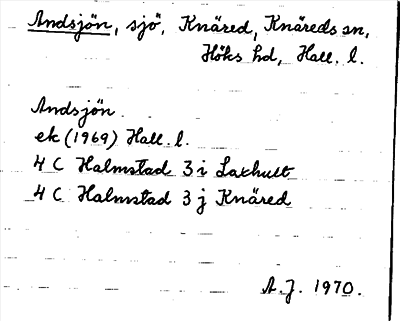 Andsjön, sjö, Knäred, Knäreds sn,
Höks hd, Hall. l.
Andsjön
ek (1969) Hall. l.
4 C Halmstad 3 i Laxhult
4 C Halmstad 3 j Knäred
A.J. 1970.